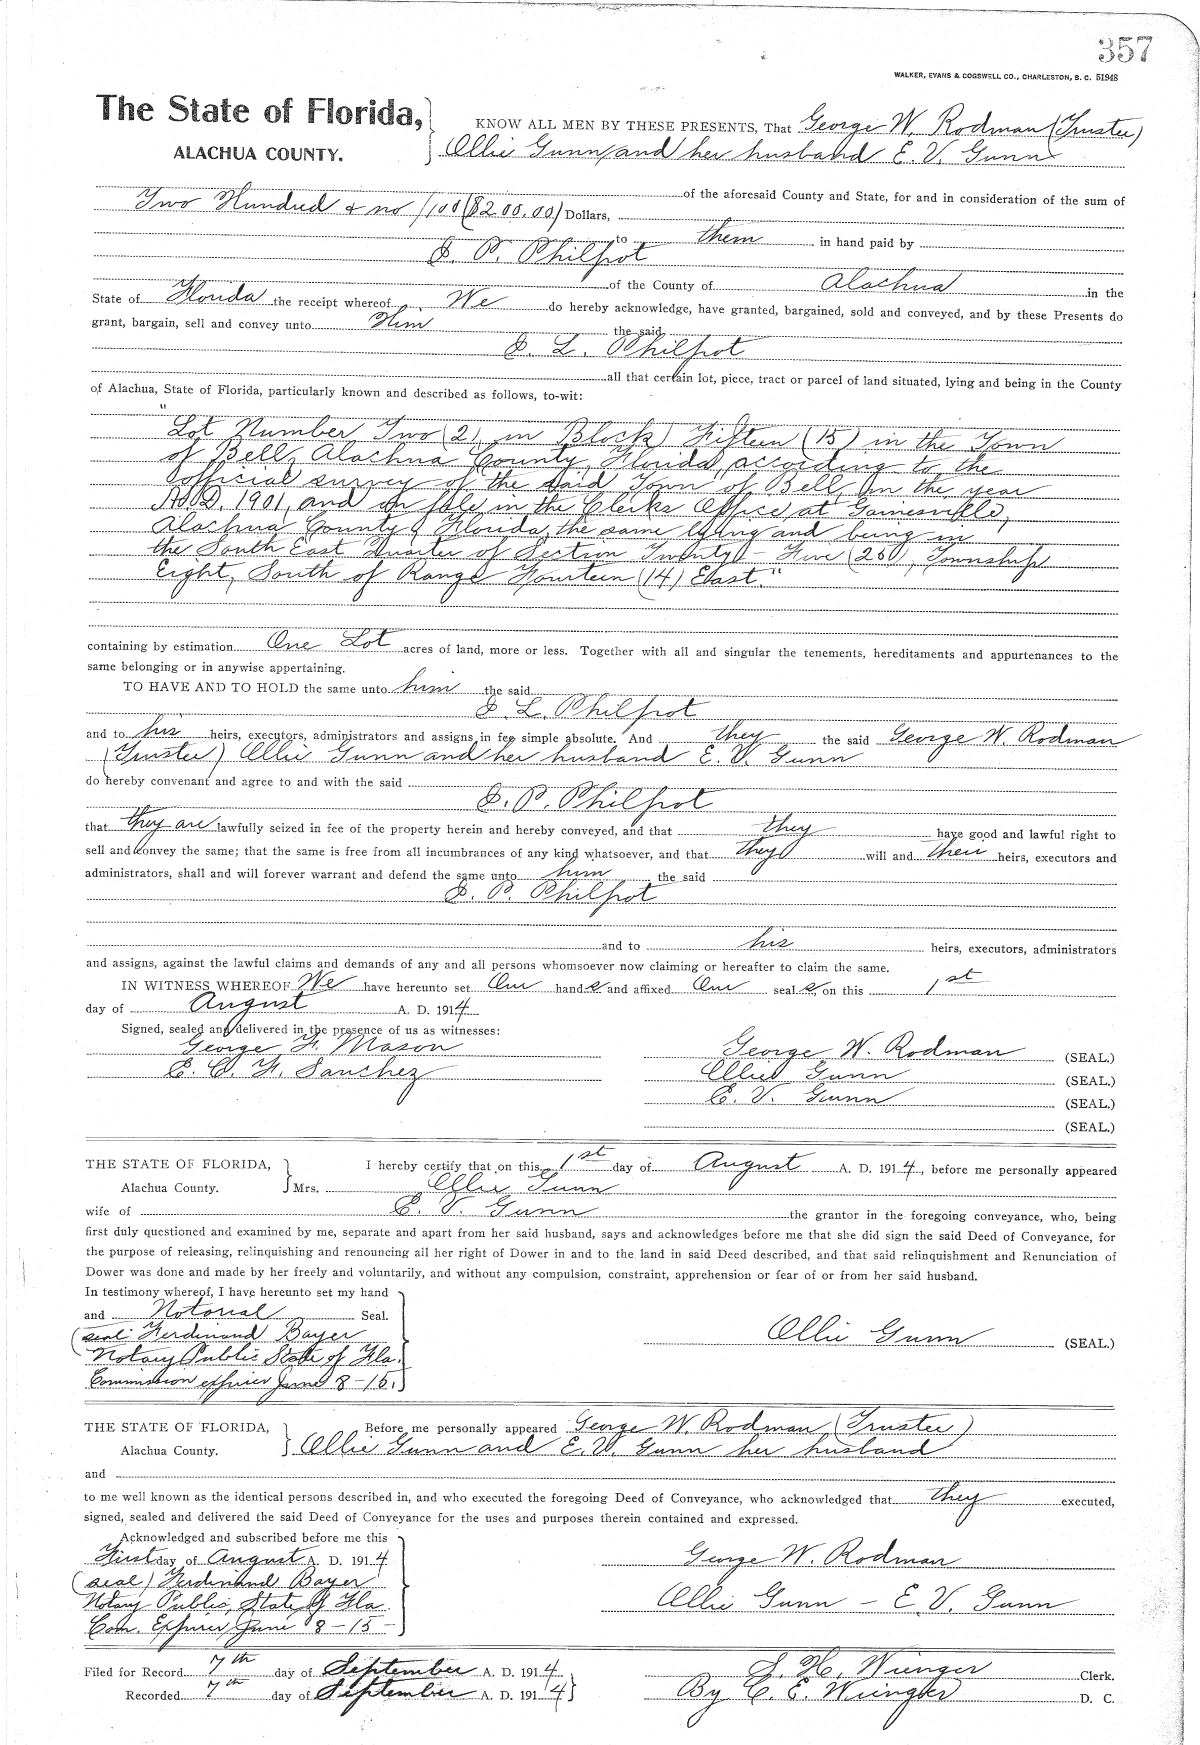 357
WALKER, EVANS & COGSWELL CO., CHARLESTON, S. C. 51948
The State of Florida,
ALACHUA COUNTY.
KNOW ALL MEN BY THESE PRESENTS, That George W. Rodman (Trustee)
Ollie Gunn and her husband E. V. Gunn
of the aforesaid County and State, for and in consideration of the sum of
Two Hundred & no/100 ($200.00) Dollars,
to them in hand paid by
P. Philpot
of the County of Alachua in the
State of Florida the receipt whereof We do hereby acknowledge, have granted, bargained, sold and conveyed, and by these Presents do
grant, bargain, sell and convey unto Him the said
L. Philpot
all that certain lot, piece, tract or parcel of land situated, lying and being in the County
of Alachua, State of Florida, particularly known and described as follows, to-wit:
"Lot Number Two (2) in Block Fifteen (15) in the Town
of Bell, Alachua County, Florida, according to the
official survey of the said Town of Bell, in the year
A. D. 1901, and on file in the Clerks Office at Gainesville,
Alachua County, Florida, the same lying and being in
the South East Quarter of Section Twenty-Five (25), Township
Eight, South of Range Fourteen (14) East."
containing by estimation One Lot acres of land, more or less. Together with all and singular the tenements, hereditaments and appurtenances to the
same belonging or in anywise appertaining.
TO HAVE AND TO HOLD the same unto him the said
L. Philpot
and to his heirs, executors, administrators and assigns in fee simple absolute. And they the said George W. Rodman
(Trustee) Ollie Gunn and her husband E. V. Gunn
do hereby convenant and agree to and with the said
P. Philpot
that they are lawfully seized in fee of the property herein and hereby conveyed, and that they have good and lawful right to
sell and convey the same; that the same is free from all incumbrances of any kind whatsoever, and that they will and their heirs, executors and
administrators, shall and will forever warrant and defend the same unto him the said
P. Philpot
and to his heirs, executors, administrators
and assigns, against the lawful claims and demands of any and all persons whomsoever now claiming or hereafter to claim the same.
IN WITNESS WHEREOF We have hereunto set Our hands and affixed Our seals, on this 1st
day of August A. D. 1914
Signed, sealed and delivered in the presence of us as witnesses:
George F. Mason
E. C. F. Sanchez
George W. Rodman (SEAL.)
Ollie Gunn (SEAL.)
E. V. Gunn (SEAL.)
(SEAL.)
THE STATE OF FLORIDA,
Alachua County.
I hereby certify that on this 1st day of August A. D. 1914, before me personally appeared
Mrs. Ollie Gunn
wife of E. V. Gunn the grantor in the foregoing conveyance, who, being
first duly questioned and examined by me, separate and apart from her said husband, says and acknowledges before me that she did sign the said Deed of Conveyance, for
the purpose of releasing, relinquishing and renouncing all her right of Dower in and to the land in said Deed described, and that said relinquishment and Renunciation of
Dower was done and made by her freely and voluntarily, and without any compulsion, constraint, apprehension or fear of or from her said husband.
In testimony whereof, I have hereunto set my hand
and Notorial Seal.
(seal) Ferdinand Bayer
Notary Public State of Fla.
Commission expires June 8-15.
Ollie Gunn (SEAL.)
THE STATE OF FLORIDA,
Alachua County.
Before me personally appeared George W. Rodman (Trustee)
Ollie Gunn and E. V. Gunn her husband
and
to me well known as the identical persons described in, and who executed the foregoing Deed of Conveyance, who acknowledged that they executed,
signed, sealed and delivered the said Deed of Conveyance for the uses and purposes therein contained and expressed.
Acknowledged and subscribed before me this
First day of August A. D. 1914
(seal) Ferdinand Bayer
Notary Public, State of Fla.
Com. Expires June 8-15-
George W. Rodman
Ollie Gunn - E. V. Gunn
Filed for Record 7th day of September A. D. 1914
Recorded 7th day of September A. D. 1914
S. H. Wienges Clerk.
By C. E. Wienges D. C.